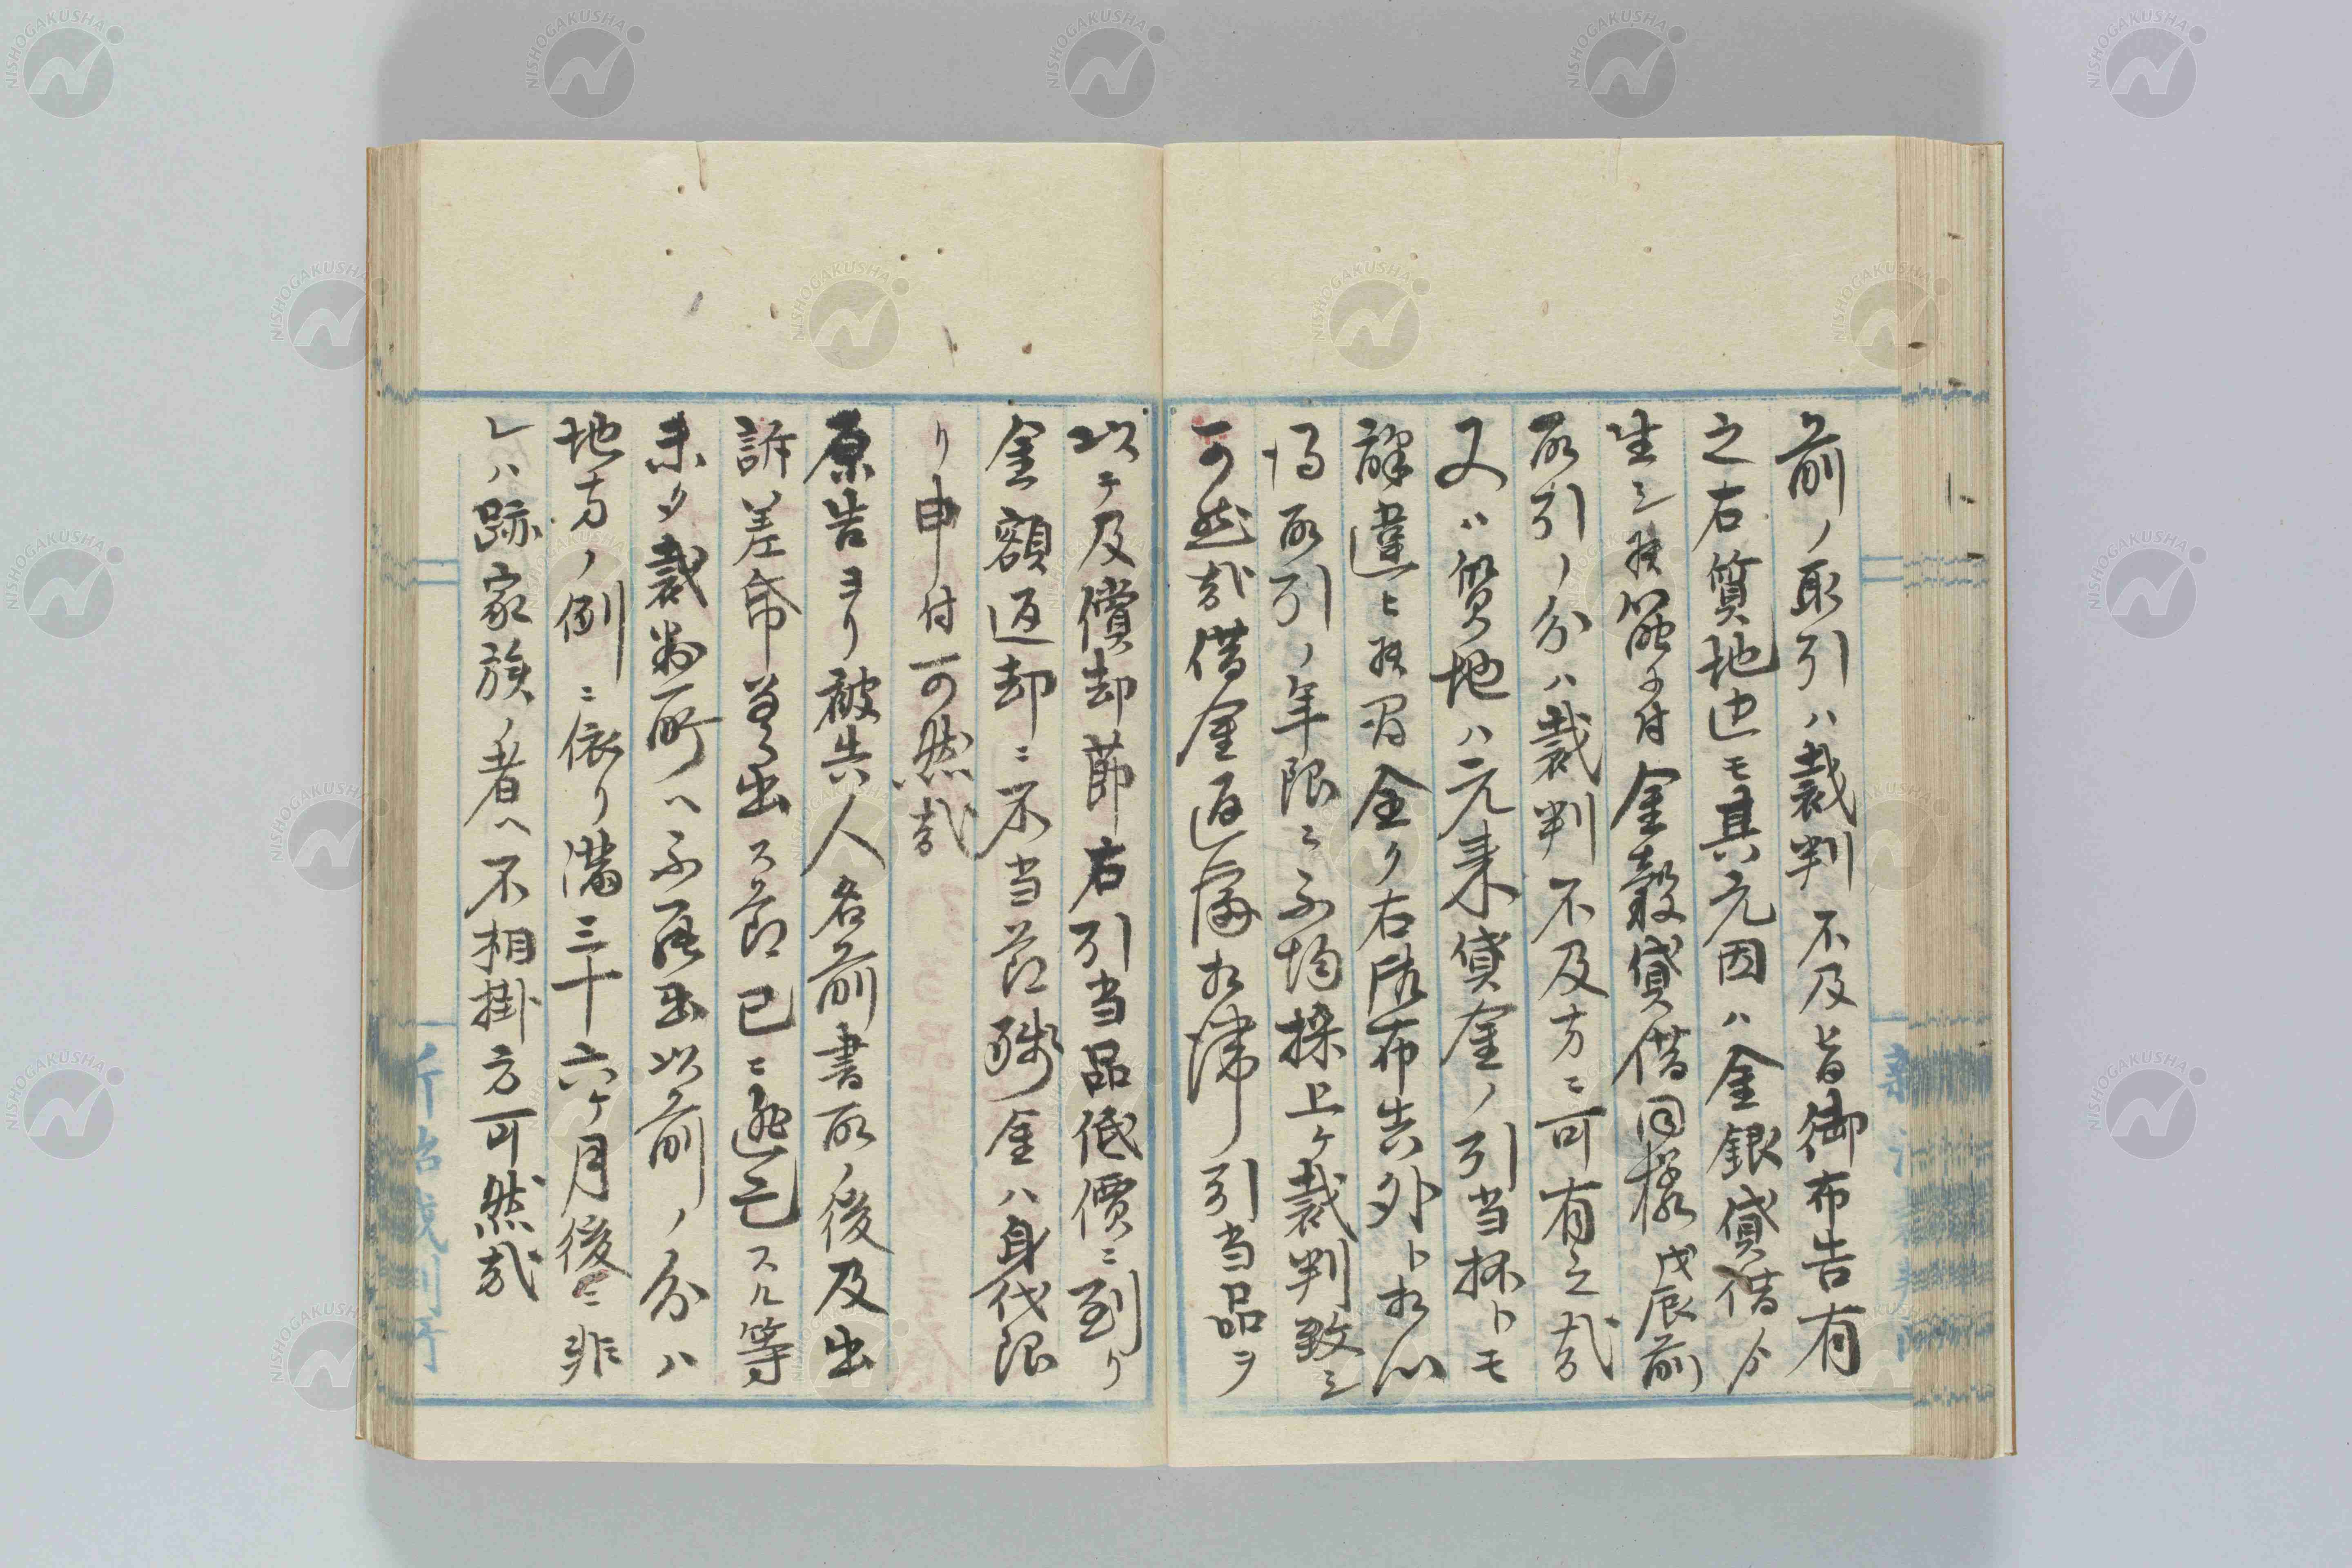 前ノ取引ハ裁判不及旨御布告有
之右質地迚モ其元因ハ金銀貸借ゟ
生シ候筋ニ付金穀貸借同様戊辰前
取引ノ分ハ裁判不及方ニ可有之哉
又ハ質地ハ元来貸金ノ引当抔トモ
譯違ヒ候間全ク右御布告外ト相心
得取引ノ年限ニ不拘採上ケ裁判致シ
可然哉借金返済相滞リ引当品ヲ
以テ及償却節右引当品低價ニ到リ
金額返却ニ不当節残金ハ身代限
リ申付可然哉
原告ヨリ被告人名前書取ノ後及出
訴差希差出ス節已ニ逃亡スル等
未タ裁判所ヘ不罷出以前ノ分ハ
地方ノ例ニ依リ満三十六ケ月後ニ非
レハ跡家族ノ者ヘ不相掛方可然哉
新治裁判所
NISHOGAKUSHA